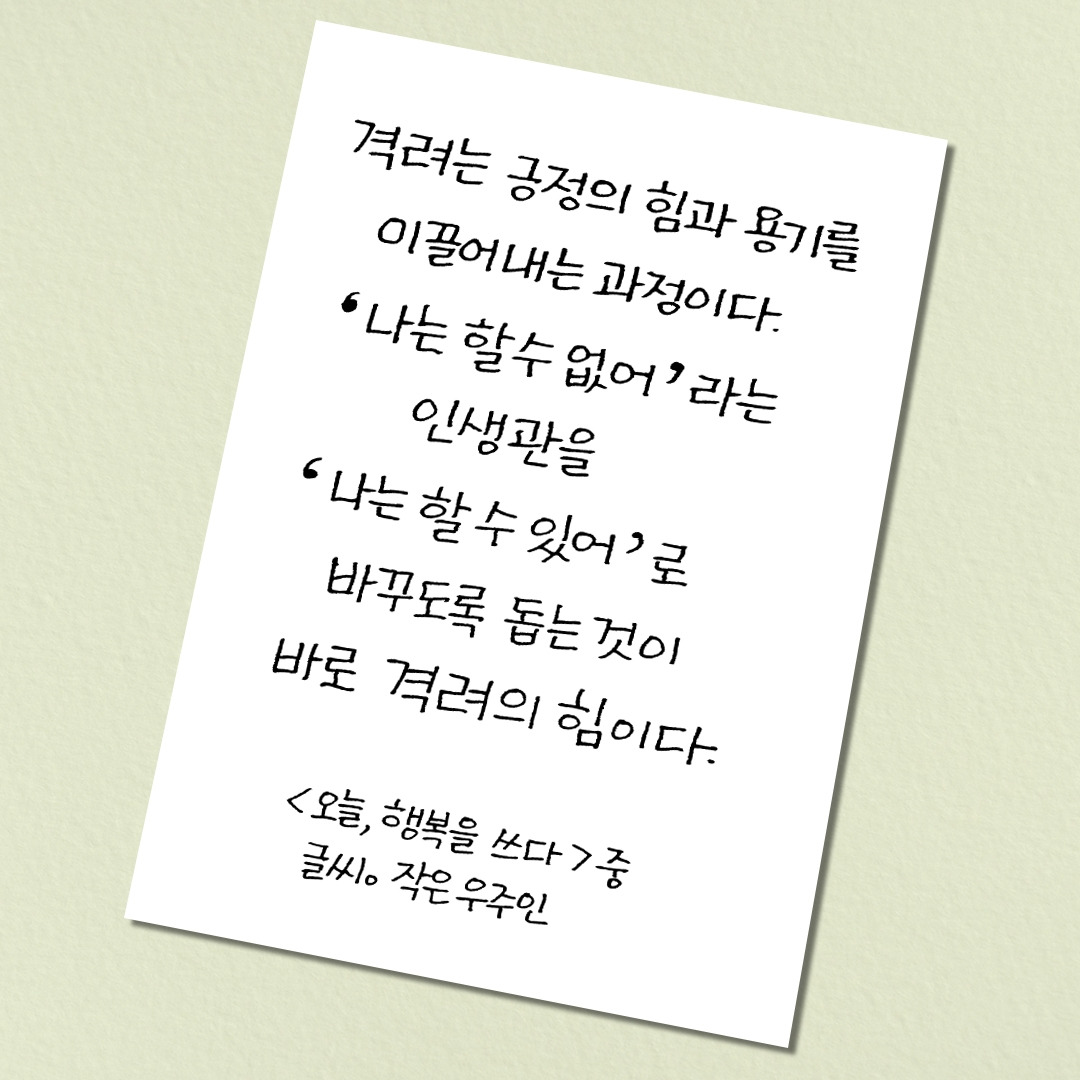 격려는 긍정의 힘과 용기를
이끌어내는 과정이다.
‘나는 할 수 없어’라는
인생관을
‘나는 할 수 있어’로
바꾸도록 돕는 것이
바로 격려의 힘이다.
<오늘, 행복을 쓰다> 중
글씨。 작은 우주인